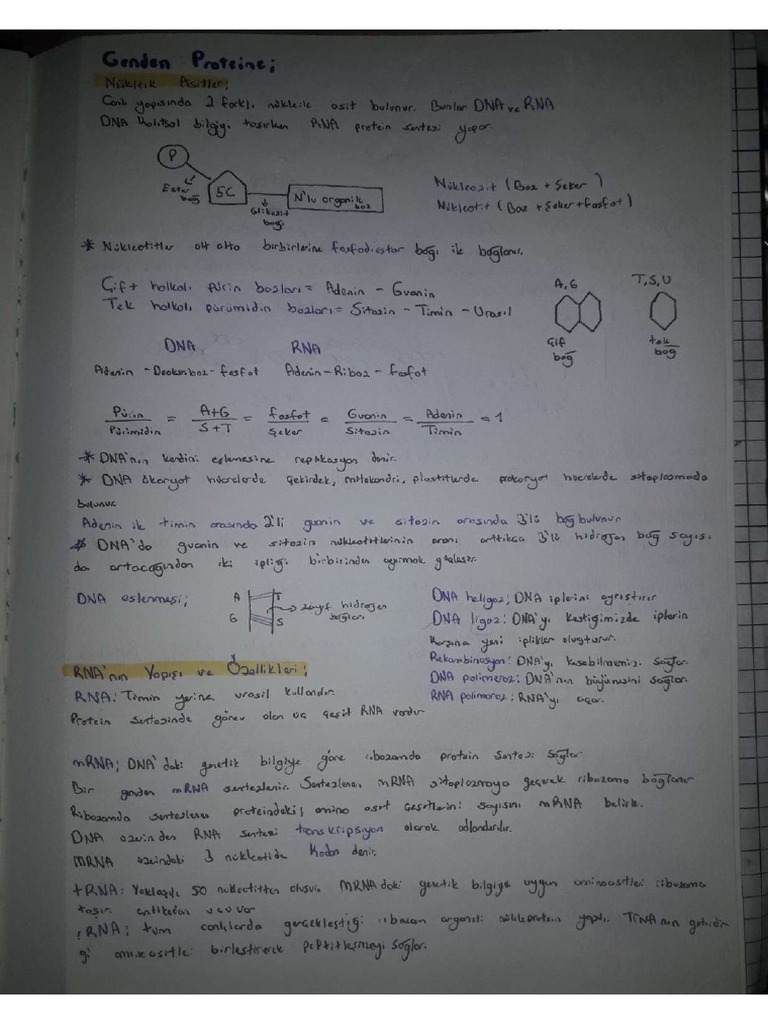 Genden Proteine;
Nükleik Asitler;
Canlı yapısında 2 farklı nükleik asit bulunur. Bunlar DNA ve RNA
DNA kalıtsal bilgiyi taşırken RNA protein sentezi yapar.
P
Ester bağ
5C
Glikozit bağı
N'lu organik baz
Nükleozit (Baz + Şeker)
Nükleotit (Baz + Şeker + Fosfat)
* Nükleotitler alt alta birbirlerine fosfodiester bağı ile bağlanır.
Çift halkalı pürin bazları = Adenin - Guanin
Tek halkalı pürimidin bazları = Sitozin - Timin - Urasil
A, G
Çif bağ
T, S, U
tek bağ
DNA RNA
Adenin - Deoksiriboz - fosfat Adenin - Riboz - fosfat
Pürin / Pürimidin = A+G / S+T = fosfat / Şeker = Guanin / Sitozin = Adenin / Timin = 1
* DNA'nın kendini eşlemesine replikasyon denir.
* DNA ökaryot hücrelerde çekirdek, mitokondri, plastitlerde prokaryot hücrelerde sitoplazmada
bulunur.
Adenin ile timin arasında 2'li guanin ve sitozin arasında 3'lü bağ bulunur
* DNA'da guanin ve sitozin nükleotitlerinin oranı arttıkça 3'lü hidrojen bağ sayısı
da artacağından iki ipliği birbirinden ayırmak güçleşir.
DNA eşlenmesi;
A T
G S
zayıf hidrojen bağları
DNA heligaz; DNA iplerini ayrıştırır
DNA ligaz: DNA'yı kestiğimizde iplerin
karşına yeni iplikler oluşturur.
Rekombinasyon: DNA'yı kesebilmemizi sağlar.
DNA polimeraz: DNA'nın büyümesini sağlar.
RNA polimeraz: RNA'yı açar.
RNA'nın Yapısı ve Özellikleri;
RNA: Timin yerine urasil kullanılır.
Protein sentezinde görev alan üç çeşit RNA vardır
mRNA; DNA'daki genetik bilgiye göre ribozomda protein sentezi sağlar
Bir genden mRNA sentezlenir. Sentezlenen mRNA sitoplazmaya geçerek ribozoma bağlanır
Ribozomda sentezlenen proteindeki amino asit çeşitlerini sayısını mRNA belirler.
DNA üzerinden RNA sentezi transkripsiyon olarak adlandırılır.
MRNA üzerindeki 3 nükleotide Kodon denir.
tRNA: Yaklaşık 50 nükleotitten oluşur MRNA daki genetik bilgiye uygun aminoasitleri ribozoma
taşır. antikodon ucu var
rRNA; tüm canlılarda gerçekleştiği ribozom organeli nükleoprotein yapılı.
gi aminoasitleri birleştirerek peptitleşmeyi sağlar.